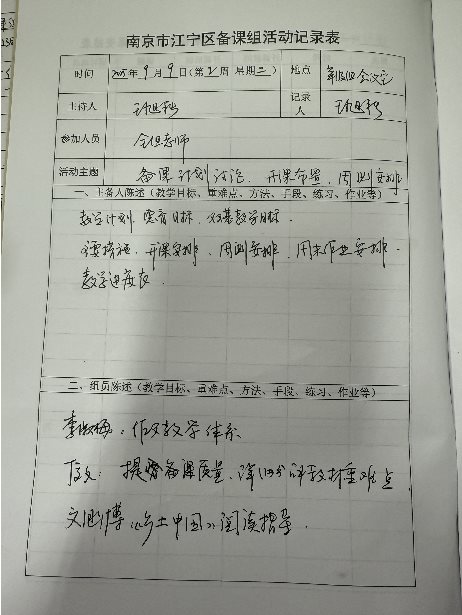 南京市江宁区备课组活动记录表
时间 2025年9月9日(第2周 星期二) 地点 年级组会议室
主持人 记录人
参加人员 全组老师
活动主题 备课计划讨论、开课布置、周测安排
一、主备人陈述(教学目标、重难点、方法、手段、练习、作业等)
教学计划、德育目标、双基教学目标.
主要措施、开课安排、周测安排、周末作业安排.
教学进度表
二、组员陈述(教学目标、重难点、方法、手段、练习、作业等)
李 梅:作文教学体系
提 备课质量, 教材重难点
文 博《乡土中国》阅读指导.